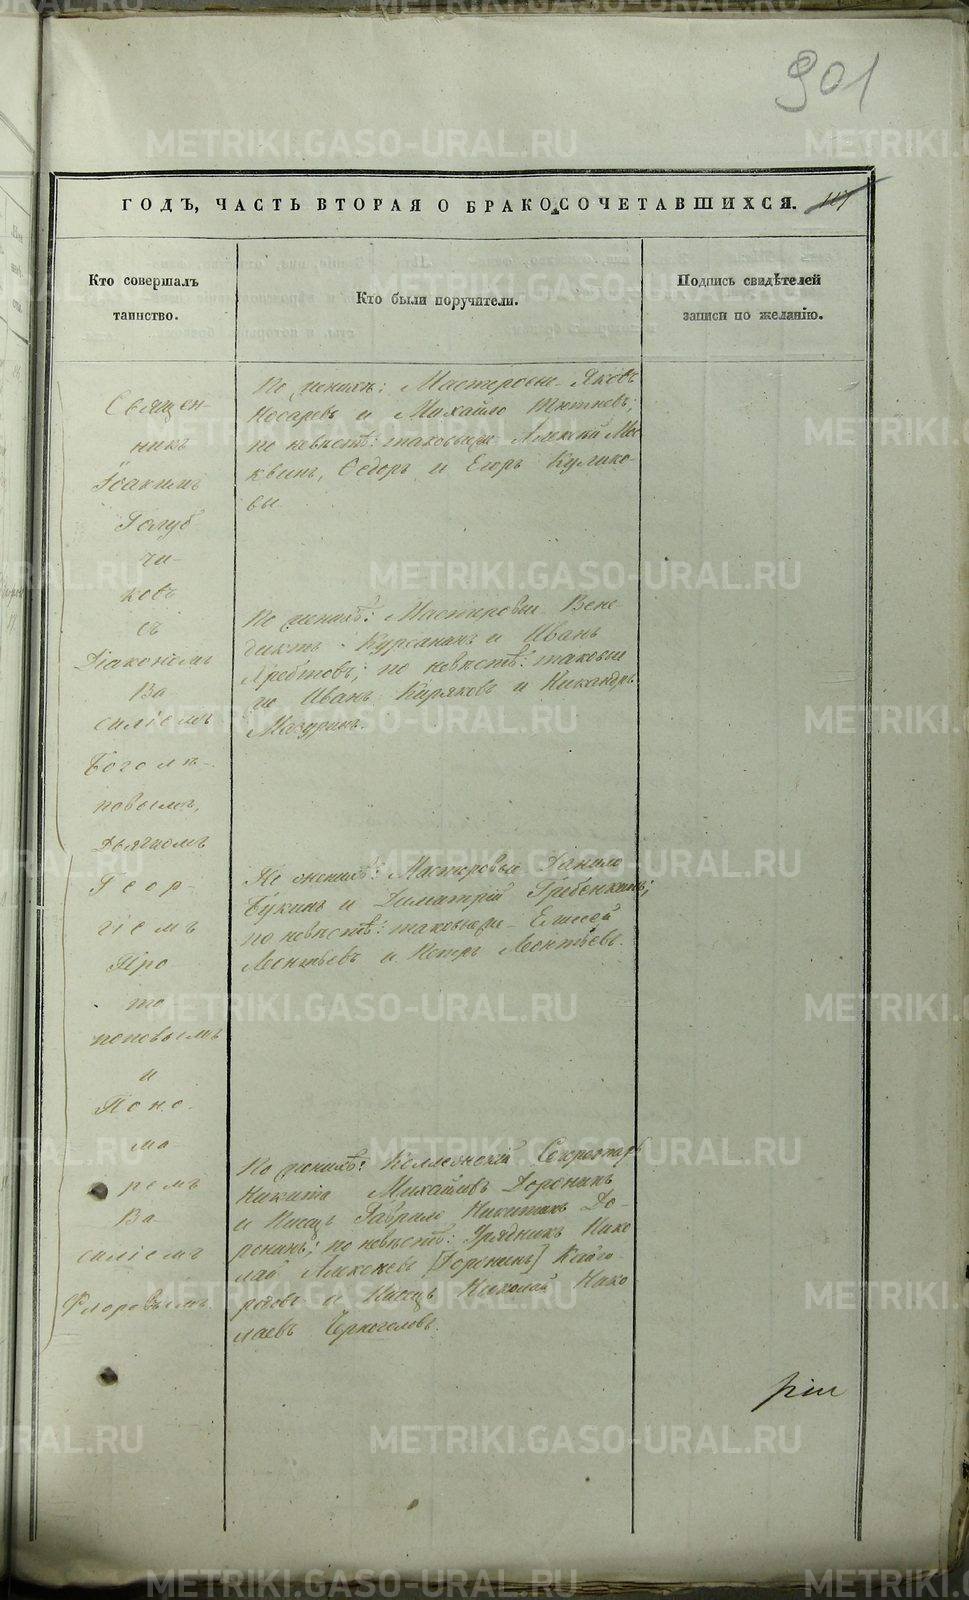 901
ГОДЪ, ЧАСТЬ ВТОРАЯ О БРАКОСОЧЕТАВШИХСЯ.
Кто совершалъ
таинство.
Кто были поручители.
Подпись свидѣтелей
записи по желанію.
Священ-
никъ
Іоакимъ
Голуб
чи-
ковъ
съ
Діакономъ
Ва
силіемъ
Боголѣ-
повымъ,
Дьячкомъ
Геор-
гіемъ
Про
то
поповымъ
и
Поно
ма
ремъ
Ва-
силіемъ
Флоровымъ
По женихѣ: Мастеровые Яковъ
Носаревъ и Михайло
по невѣстѣ: таковыеже Алексѣй Мос
квинъ, Ѳедоръ и Егоръ Кулико-
вы
По женихѣ: Мастеровые Вене-
диктъ и Иванъ
Хребтовъ; по невѣстѣ: таковые
же Иванъ Киряковъ и Никандръ
Мазуринъ.
По женихѣ: Мастеровые Данило
Букинъ и Димитрій Гребенкинъ;
по невѣстѣ: таковыеже Елисей
Леонтьевъ и Петръ Леонтьевъ.
По женихѣ: Коллежскій Секретарь
Никита Михайловъ Доронинъ
и Писецъ Гаврило Никитинъ До-
ронинъ; по невѣстѣ: Урядникъ Нико
лай Алексѣевъ [Доронинъ] Кайго
родовъ и Писецъ Николай Нико
лаевъ
METRIKI.GASO-URAL.RU